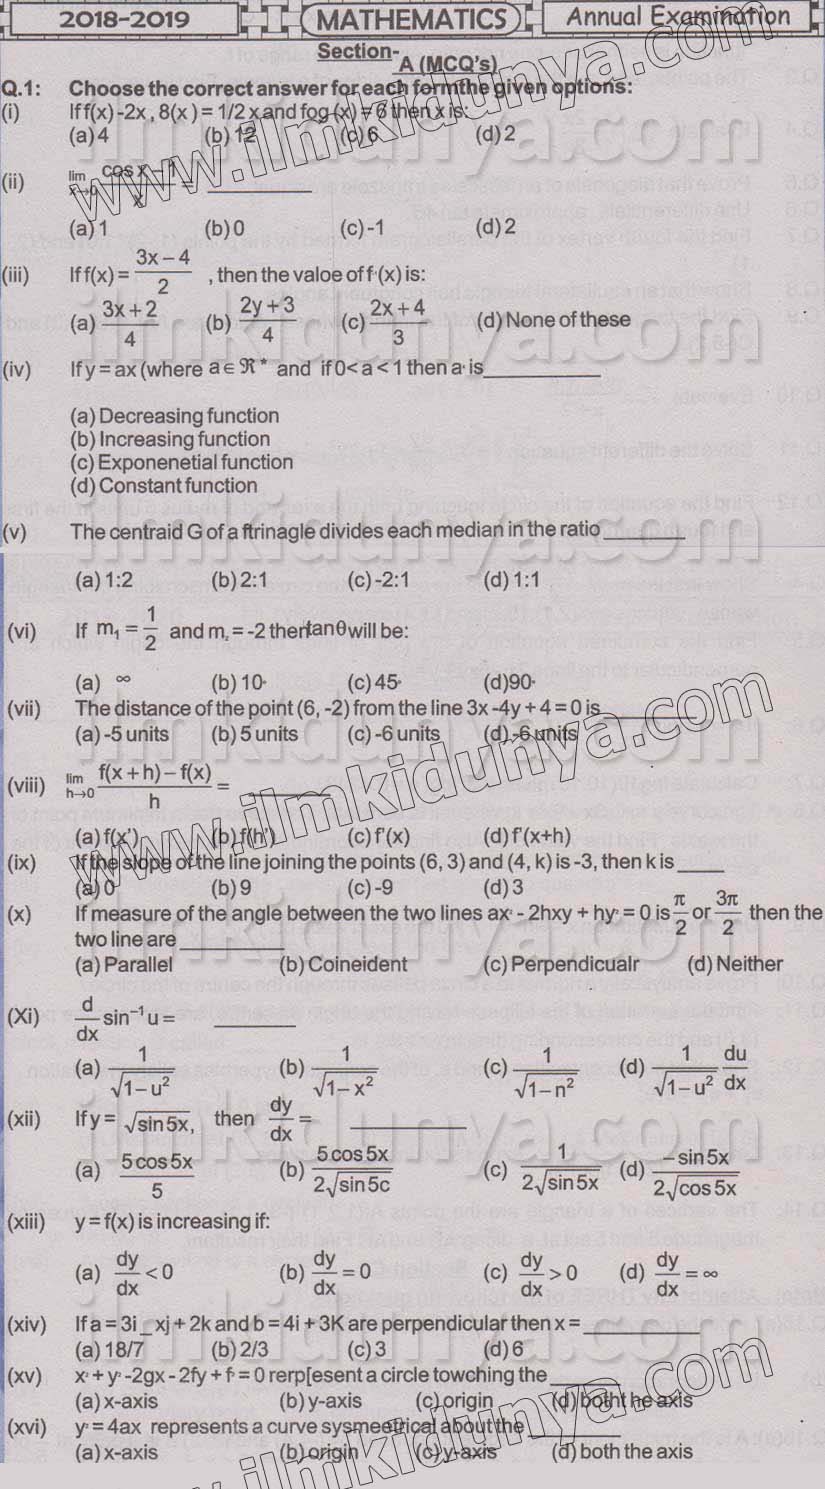 2018-2019 MATHEMATICS Annual Examination
Section-A (MCQ's)
Q.1: Choose the correct answer for each formthe given options:
(i) If f(x) -2x , 8(x ) = 1/2 x and fog (x) = 6 then x is:
(a) 4 (b) 12 (c) 6 (d) 2
(ii) lim x→0 cos x – 1 / x = ________
(a) 1 (b) 0 (c) -1 (d) 2
(iii) If f(x) = 3x – 4 / 2 , then the valoe of f'(x) is:
(a) 3x + 2 / 4 (b) 2y + 3 / 4 (c) 2x + 4 / 3 (d) None of these
(iv) If y = ax (where a ∈ ℜ* and if 0 < a < 1 then a is________
(a) Decreasing function
(b) Increasing function
(c) Exponenetial function
(d) Constant function
(v) The centraid G of a ftrinagle divides each median in the ratio________
(a) 1:2 (b) 2:1 (c) -2:1 (d) 1:1
(vi) If m₁ = 1/2 and m₂ = -2 then tanθ will be:
(a) ∞ (b) 10° (c) 45° (d)90°
(vii) The distance of the point (6, -2) from the line 3x -4y + 4 = 0 is________
(a) -5 units (b) 5 units (c) -6 units (d) -6 units
(viii) lim h→0 f(x + h) – f(x) / h = ________
(a) f(x') (b) f(h') (c) f'(x) (d) f'(x+h)
(ix) If the slope of the line joining the points (6, 3) and (4, k) is -3, then k is ____
(a) 0 (b) 9 (c) -9 (d) 3
(x) If measure of the angle between the two lines ax² - 2hxy + hy² = 0 is π/2 or 3π/2 then the
two line are________
(a) Parallel (b) Coineident (c) Perpendicualr (d) Neither
(Xi) d/dx sin⁻¹ u = ________
(a) 1/√1–u² (b) 1/√1–x² (c) 1/√1–n² (d) 1/√1–u² du/dx
(xii) If y = √sin 5x, then dy/dx = ________
(a) 5 cos 5x / 5 (b) 5 cos 5x / 2√sin 5c (c) 1 / 2√sin 5x (d) – sin 5x / 2√cos 5x
(xiii) y = f(x) is increasing if:
(a) dy/dx < 0 (b) dy/dx = 0 (c) dy/dx > 0 (d) dy/dx = ∞
(xiv) If a = 3i _ xj + 2k and b = 4i + 3K are perpendicular then x = ________
(a) 18/7 (b) 2/3 (c) 3 (d) 6
(xv) x² + y² -2gx - 2fy + f² = 0 rerp[esent a circle towching the________
(a) x-axis (b) y-axis (c) origin (d) botht he axis
(xvi) y² = 4ax represents a curve sysmeetrical about the________
(a) x-axis (b) origin (c) y-axis (d) both the axis
www.ilmkidunya.com
ilmkidunya.com
ilmkidunya.com
ilmkidunya.com
ilmkidunya.com
www.ilmkidunya.com
ilmkidunya.com
ilmkidunya.com
ilmkidunya.com
ilmkidunya.com
www.ilmkidunya.com